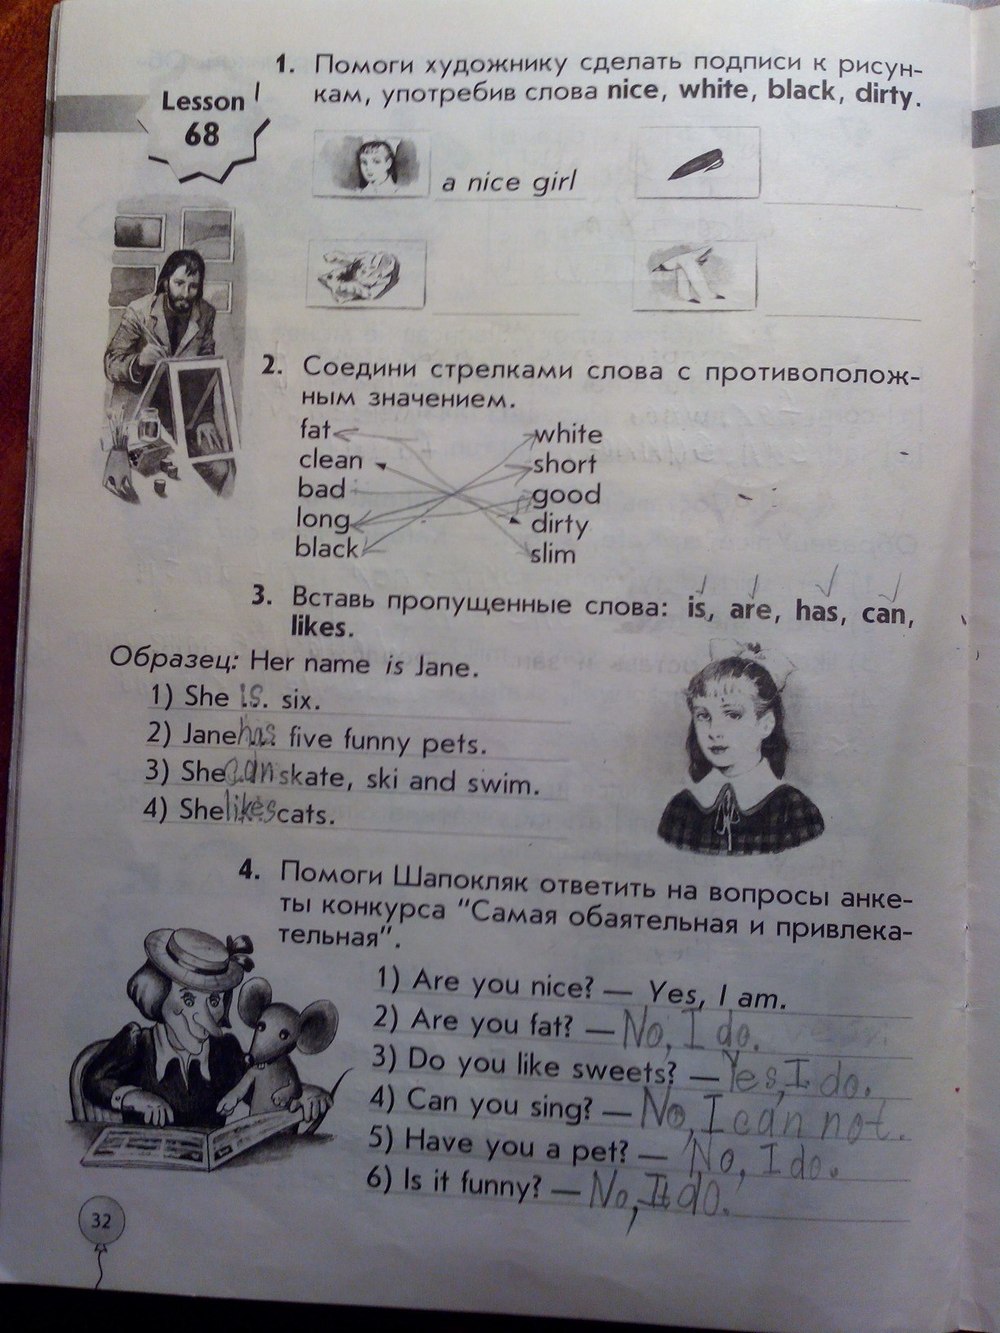 Lesson
68
1. Помоги художнику сделать подписи к рисун-
кам, употребив слова nice, white, black, dirty.
a nice girl
2. Соедини стрелками слова с противополож-
ным значением.
fat white
clean short
bad good
long dirty
black slim
3. Вставь пропущенные слова: is, are, has, can,
likes.
Образец: Her name is Jane.
1) She is. six.
2) Jane has five funny pets.
3) She can skate, ski and swim.
4) She likes cats.
4. Помоги Шапокляк ответить на вопросы анке-
ты конкурса "Самая обаятельная и привлека-
тельная".
1) Are you nice? — Yes, I am.
2) Are you fat? — No, I do.
3) Do you like sweets? — Yes, I do.
4) Can you sing? — No, I can not.
5) Have you a pet? — No, I do.
6) Is it funny? — No, It do.
32